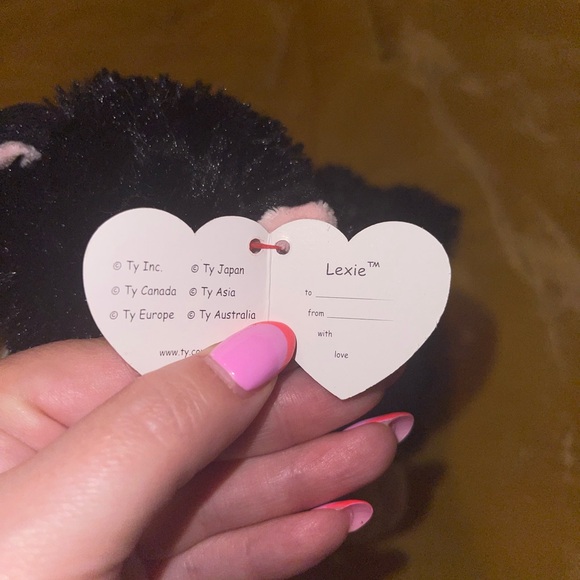 © Ty Inc.
© Ty Canada
© Ty Europe
© Ty Japan
© Ty Asia
© Ty Australia
www.ty.co
Lexie™
to
from
with
love